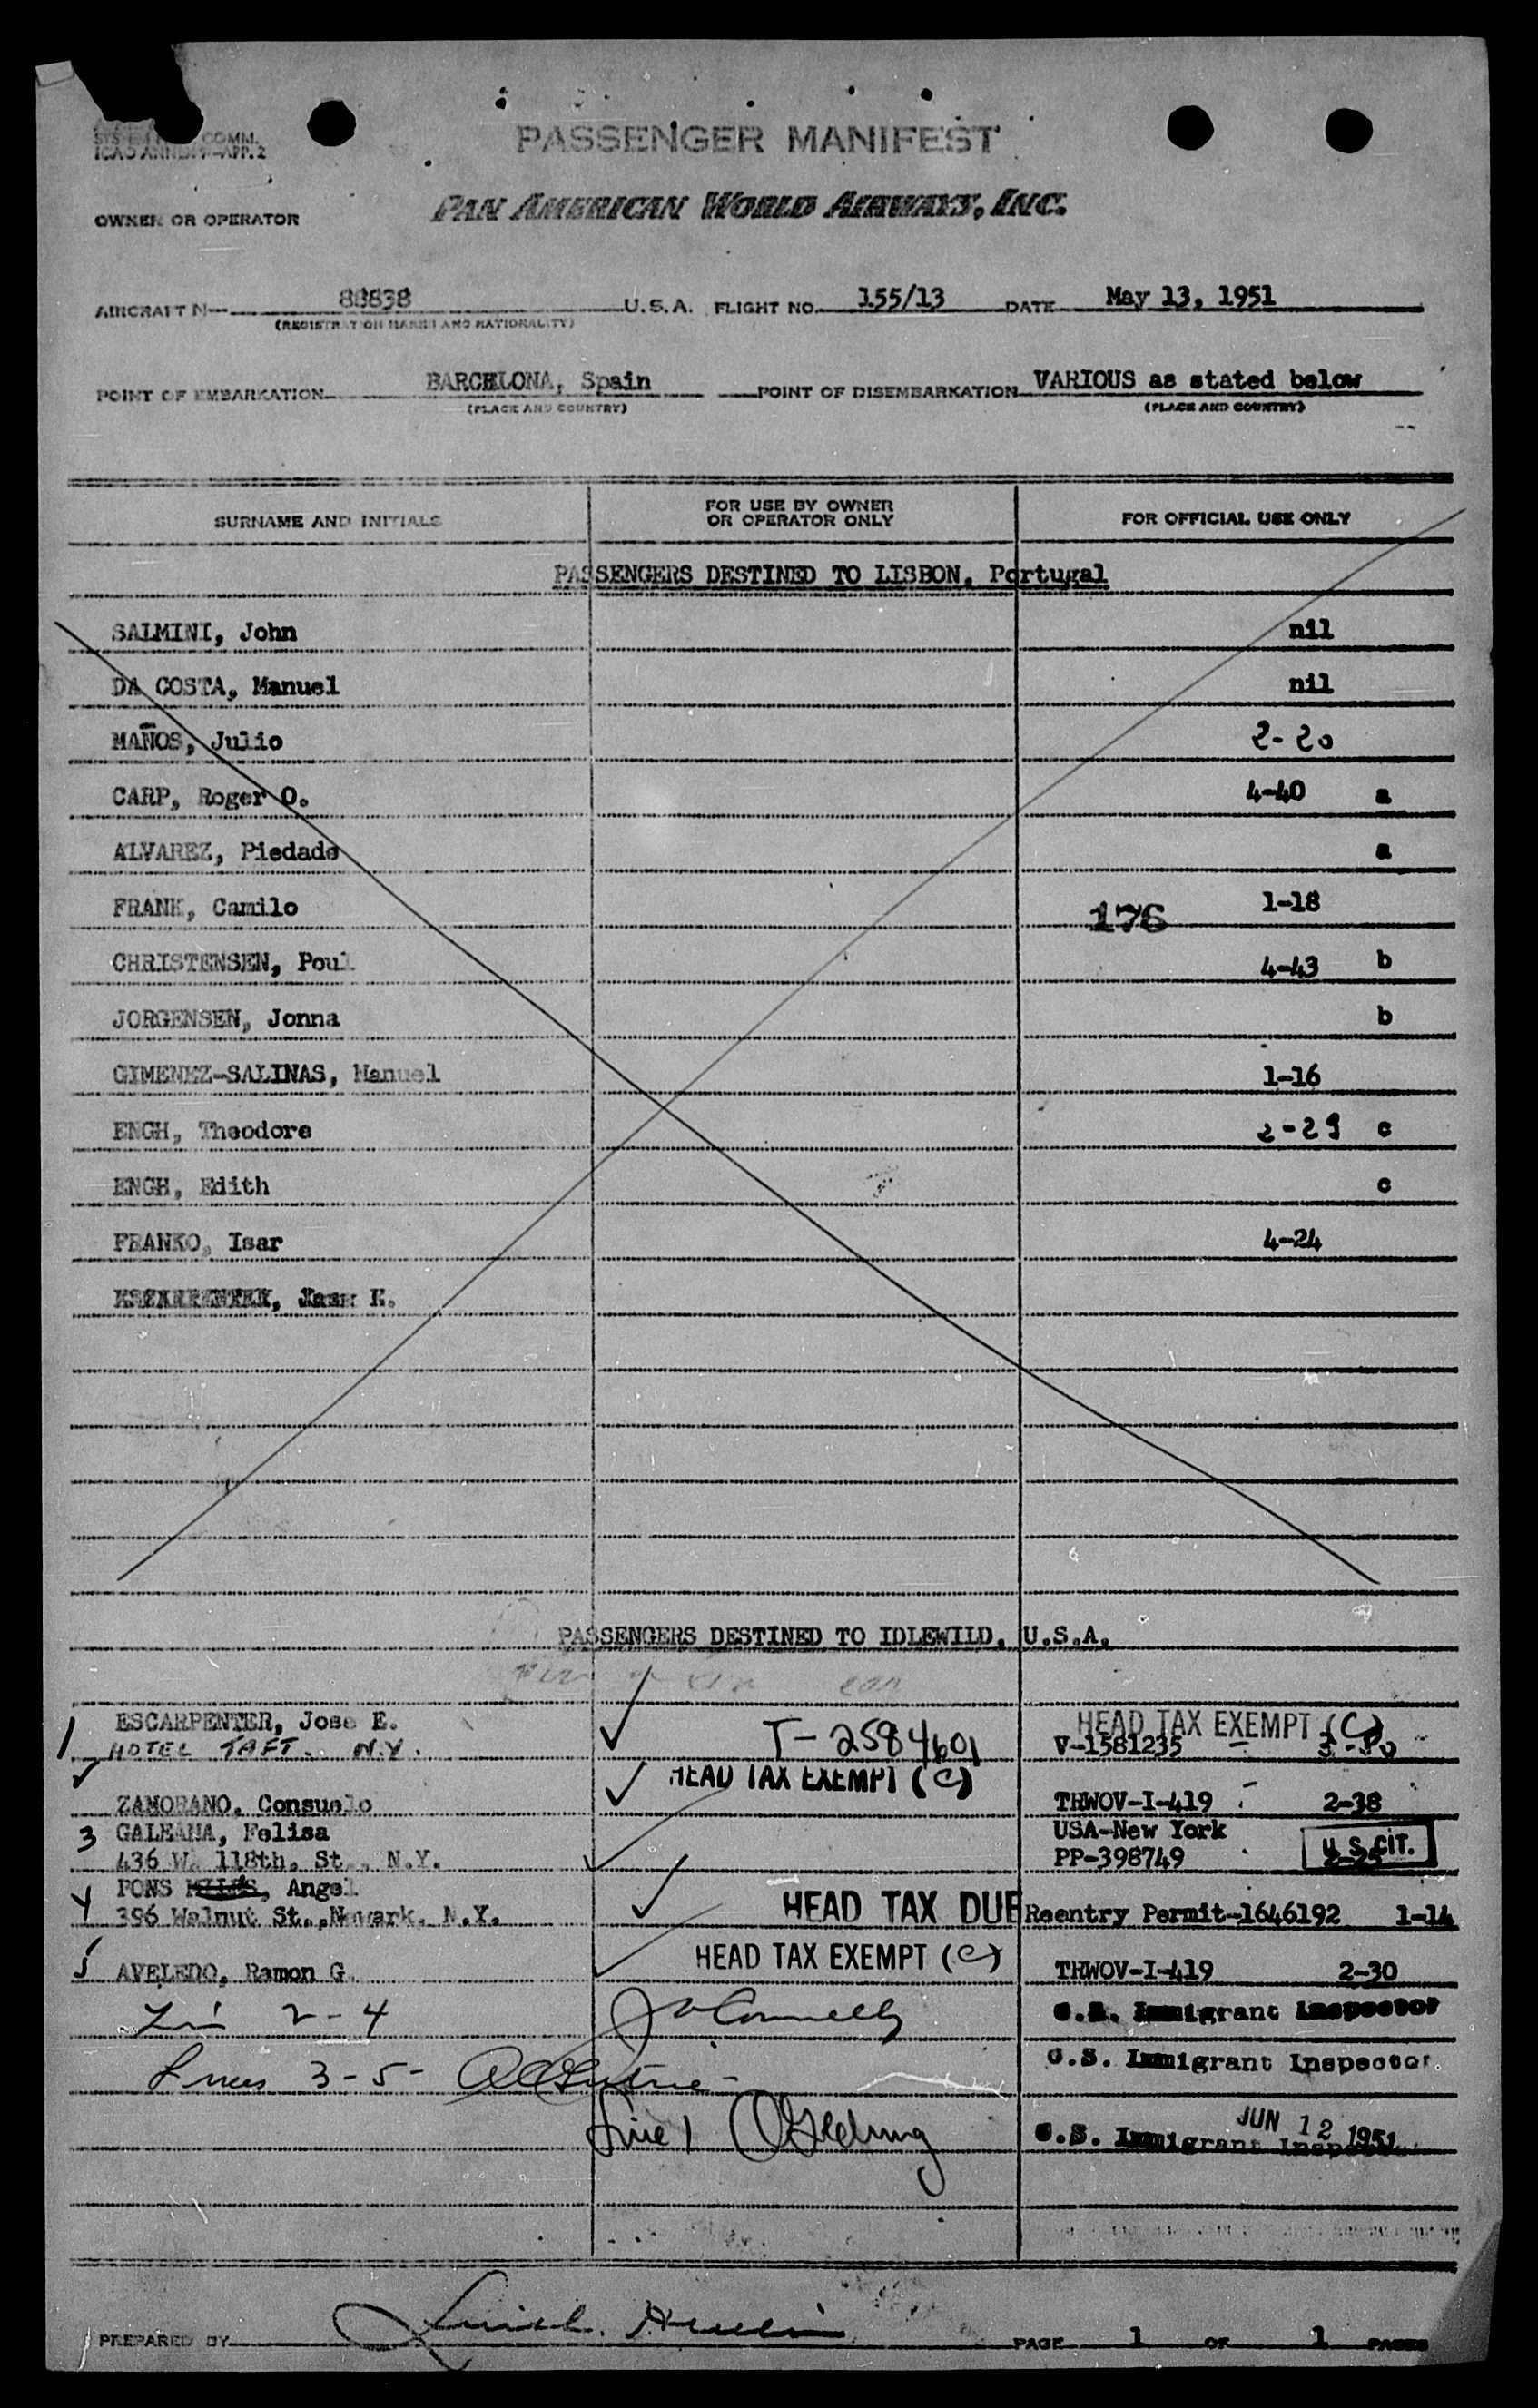 COMM.
ICAO ANNEX 9-APP. 2
PASSENGER MANIFEST
OWNER OR OPERATOR PAN AMERICAN WORLD AIRWAYS, INC.
AIRCRAFT N 88838 U.S.A. FLIGHT NO. 155/13 DATE May 13, 1951
(REGISTRATION MARKS AND NATIONALITY)
POINT OF EMBARKATION BARCELONA, Spain POINT OF DISEMBARKATION VARIOUS as stated below
(PLACE AND COUNTRY) (PLACE AND COUNTRY)
SURNAME AND INITIALS FOR USE BY OWNER OR OPERATOR ONLY FOR OFFICIAL USE ONLY
PASSENGERS DESTINED TO LISBON, Portugal
SALMINI, John nil
DA COSTA, Manuel nil
MAÑOS, Julio 2-20
CARP, Roger O. 4-40 a
ALVAREZ, Piedade a
FRANK, Camilo 176 1-18
CHRISTENSEN, Poul 4-43 b
JORGENSEN, Jonna b
GIMENEZ-SALINAS, Manuel 1-16
ENGH, Theodore 2-29 c
ENGH, Edith c
FRANKO, Isar 4-24
PASSENGERS DESTINED TO IDLEWILD, U.S.A.
1 ESCARPENTER, Jose E. HEAD TAX EXEMPT (C)
HOTEL TAFT. N.Y. T-2584601 V-1581235
HEAD TAX EXEMPT (C)
ZAMORANO, Consuelo TRWOV-I-419 2-38
3 GALEANA, Felisa USA-New York U.S. CIT.
436 W. 118th. St., N.Y. PP-398749
4 PONS, Angel HEAD TAX DUE
396 Walnut St., Newark. N.Y. Reentry Permit-1646192 1-14
HEAD TAX EXEMPT (C)
5 AVELEDO, Ramon G. TRWOV-I-419 2-30
2-4 J Connelly U.S. Immigrant Inspector
Lines 3-5- U.S. Immigrant Inspector
Line 1 U.S. Immigrant Inspector
JUN 12 1951
PREPARED BY PAGE 1 OF 1 PAGES